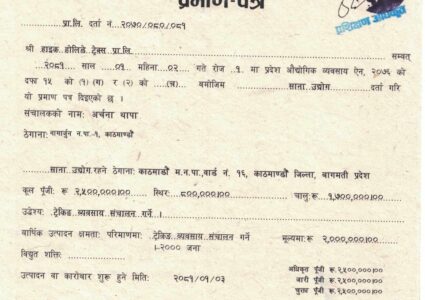 प्रमाण-पत्र
प्रा.लि. दर्ता नं. २०७०/०८०/०८१
श्री हाइक होलिडे ट्रेक्स प्रा.लि. सम्वत्
२०८१ साल ०१ महिना ०२ गते रोज १ मा प्रदेश औद्योगिक व्यवसाय ऐन, २०७६ को
दफा १५ को (१)(ग) र (२) को (च) बमोजिम साना उद्योग दर्ता गरि
यो प्रमाण पत्र दिइएको छ ।
संचालकको नाम: अर्चना थापा
ठेगाना: नागार्जुन न.पा.-१, काठमाण्डौ
साना उद्योग रहने ठेगाना: काठमाडौं म.न.पा. वार्ड नं. १६, काठमाण्डौं जिल्ला, बागमती प्रदेश
कूल पूँजी: रू २,५००,०००।०० स्थिर: ८००,०००।०० चालु: रू १,७००,०००।००
उद्देश्य: ट्रेकिङ व्यवसाय संचालन गर्ने ।
वार्षिक उत्पादन क्षमता: परिमाणमा: ट्रेकिङ व्यवसाय संचालन गर्ने मूल्यमा: रू २,०००,०००।००
।-२००० जना
विद्युत शक्ति:
उत्पादन वा कारोबार शुरू हुने मिति: २०८१/०१/०३
अधिकृत पूँजी रू.२,५००,०००।००
जारी पूँजी रू.२,५००,०००।००
चुक्ता पूँजी रू.२,५००,०००।००